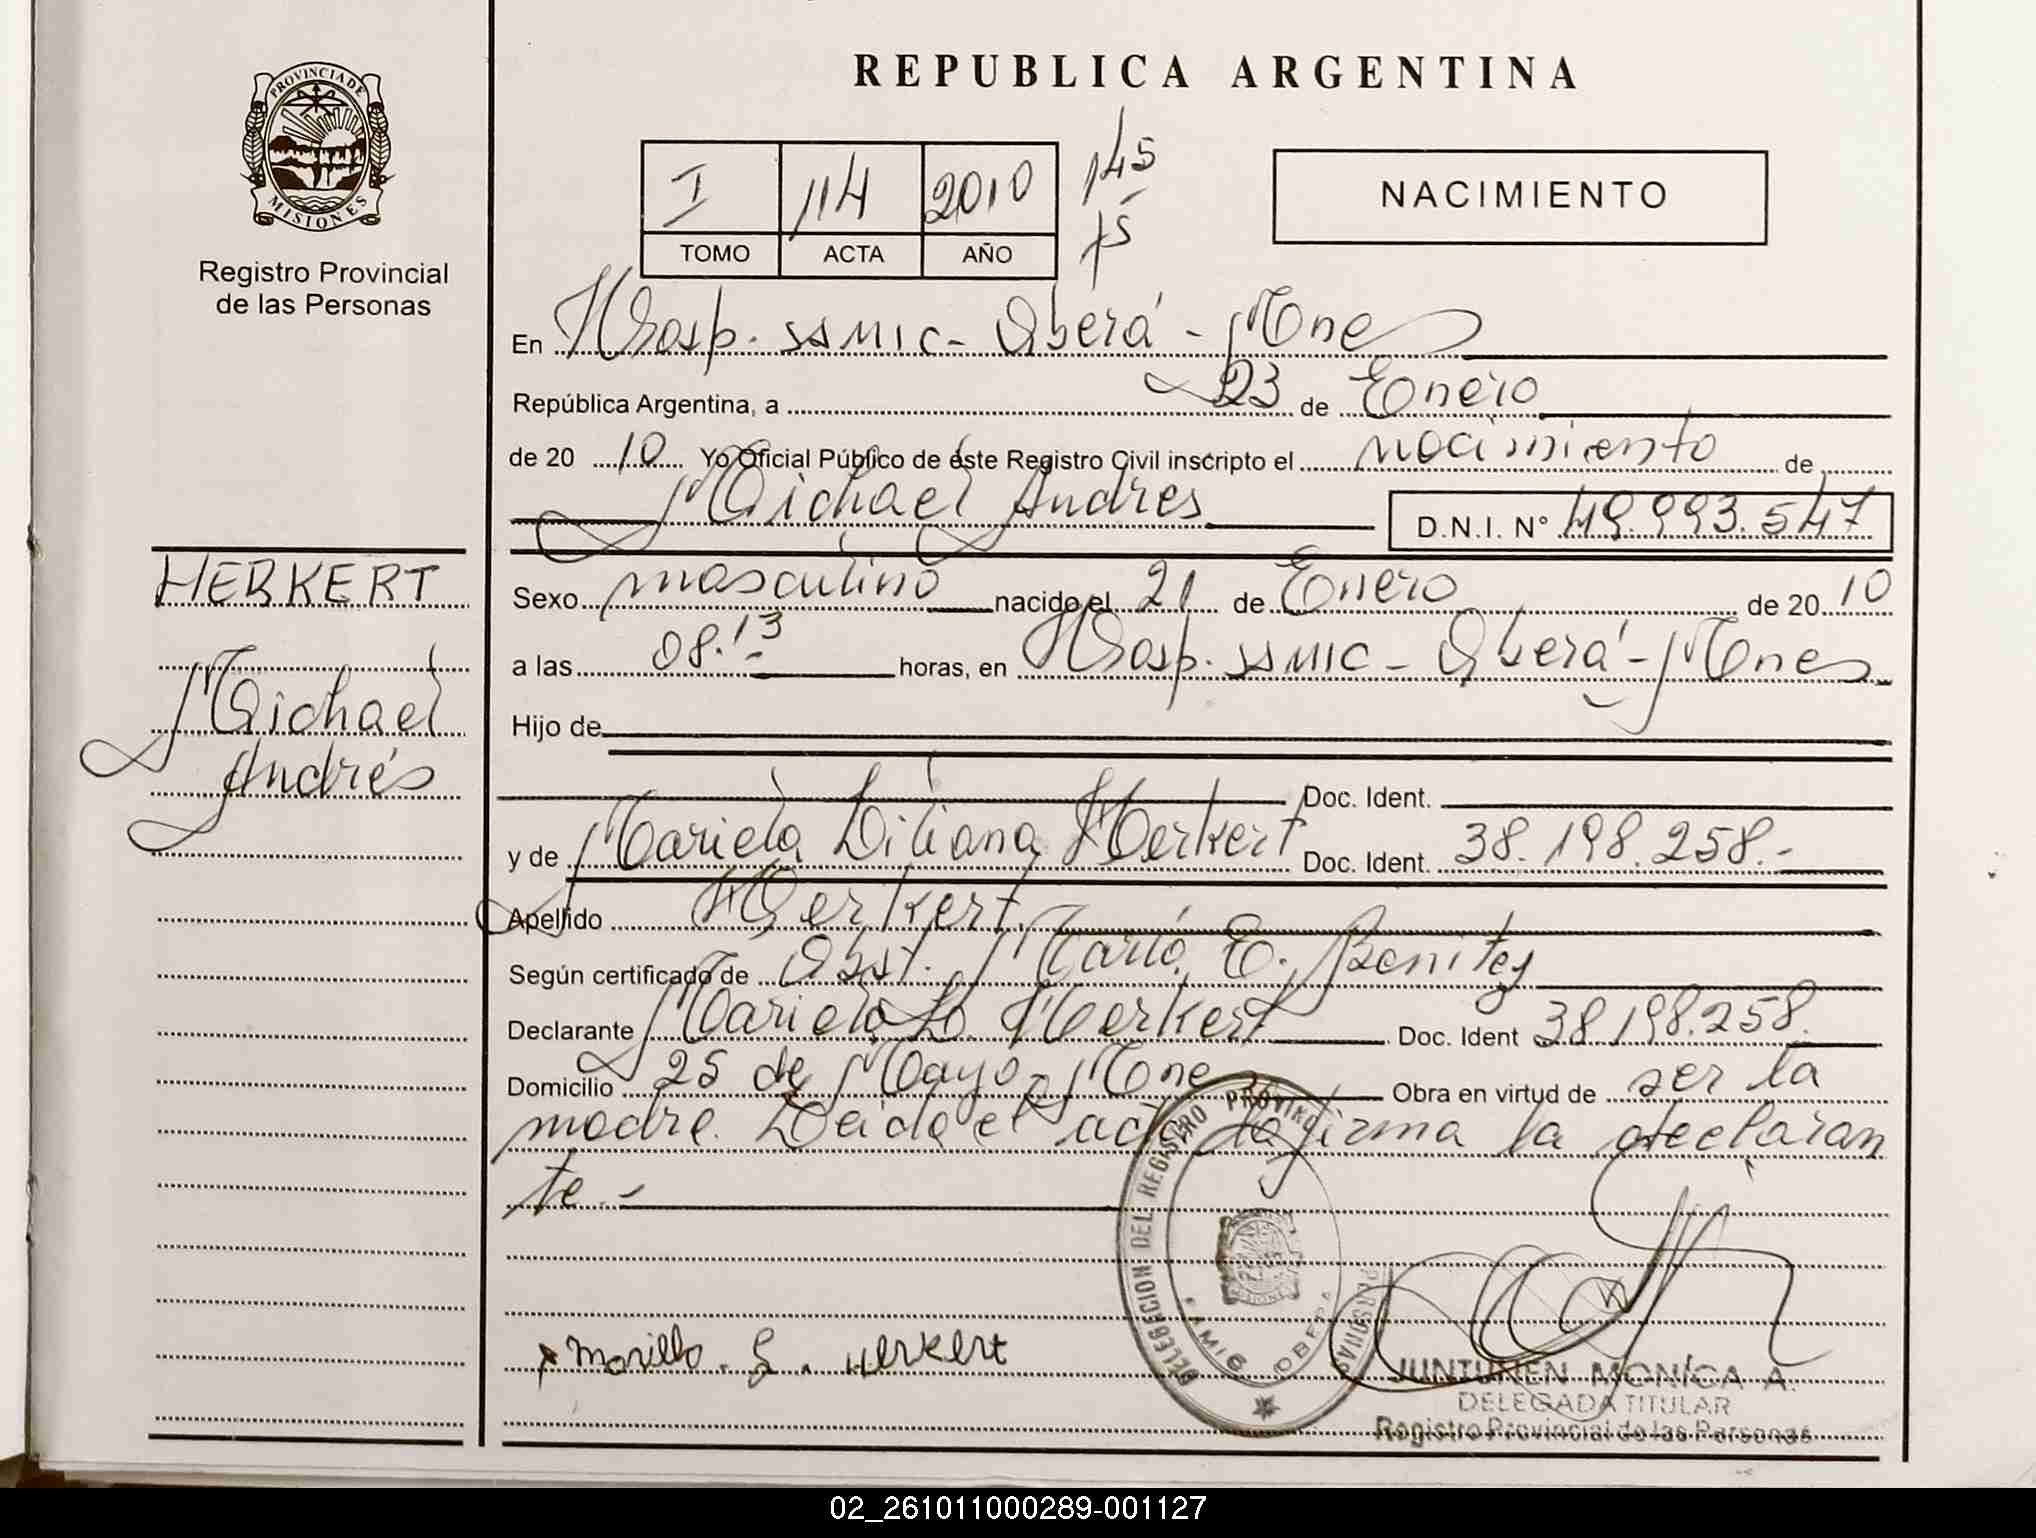 REPUBLICA ARGENTINA
PROVINCIA DE
MISIONES
Registro Provincial
de las Personas
I 114 2010
TOMO ACTA AÑO
145
NACIMIENTO
En Hosp. SSMIC - Oberá - Mnes
República Argentina, a 23 de Enero
de 20 10 Yo Oficial Público de éste Registro Civil inscripto el nacimiento de
Michael Andres D.N.I. N° 49.993.547
HERKERT
Michael
Andrés
Sexo masculino nacido el 21 de Enero de 20 10
a las 08.13 horas, en Hosp. SSMIC - Oberá - Mnes
Hijo de
Doc. Ident.
y de Mariela Liliana Herkert Doc. Ident. 38.198.258.-
Apellido Herkert
Según certificado de Obst. E. Benitez
Declarante Mariela L. Herkert Doc. Ident 38.198.258.
Domicilio 25 de Mayo - Mnes Obra en virtud de ser la
madre. Leida el acta la firma la declaran
te.-
DELEGACION DEL REGISTRO PROVINC PERSONAS
OBERA
Herkert
JUNTUNEN MONICA A.
DELEGADA TITULAR
Registro Provincial de las Personas
02_261011000289-001127